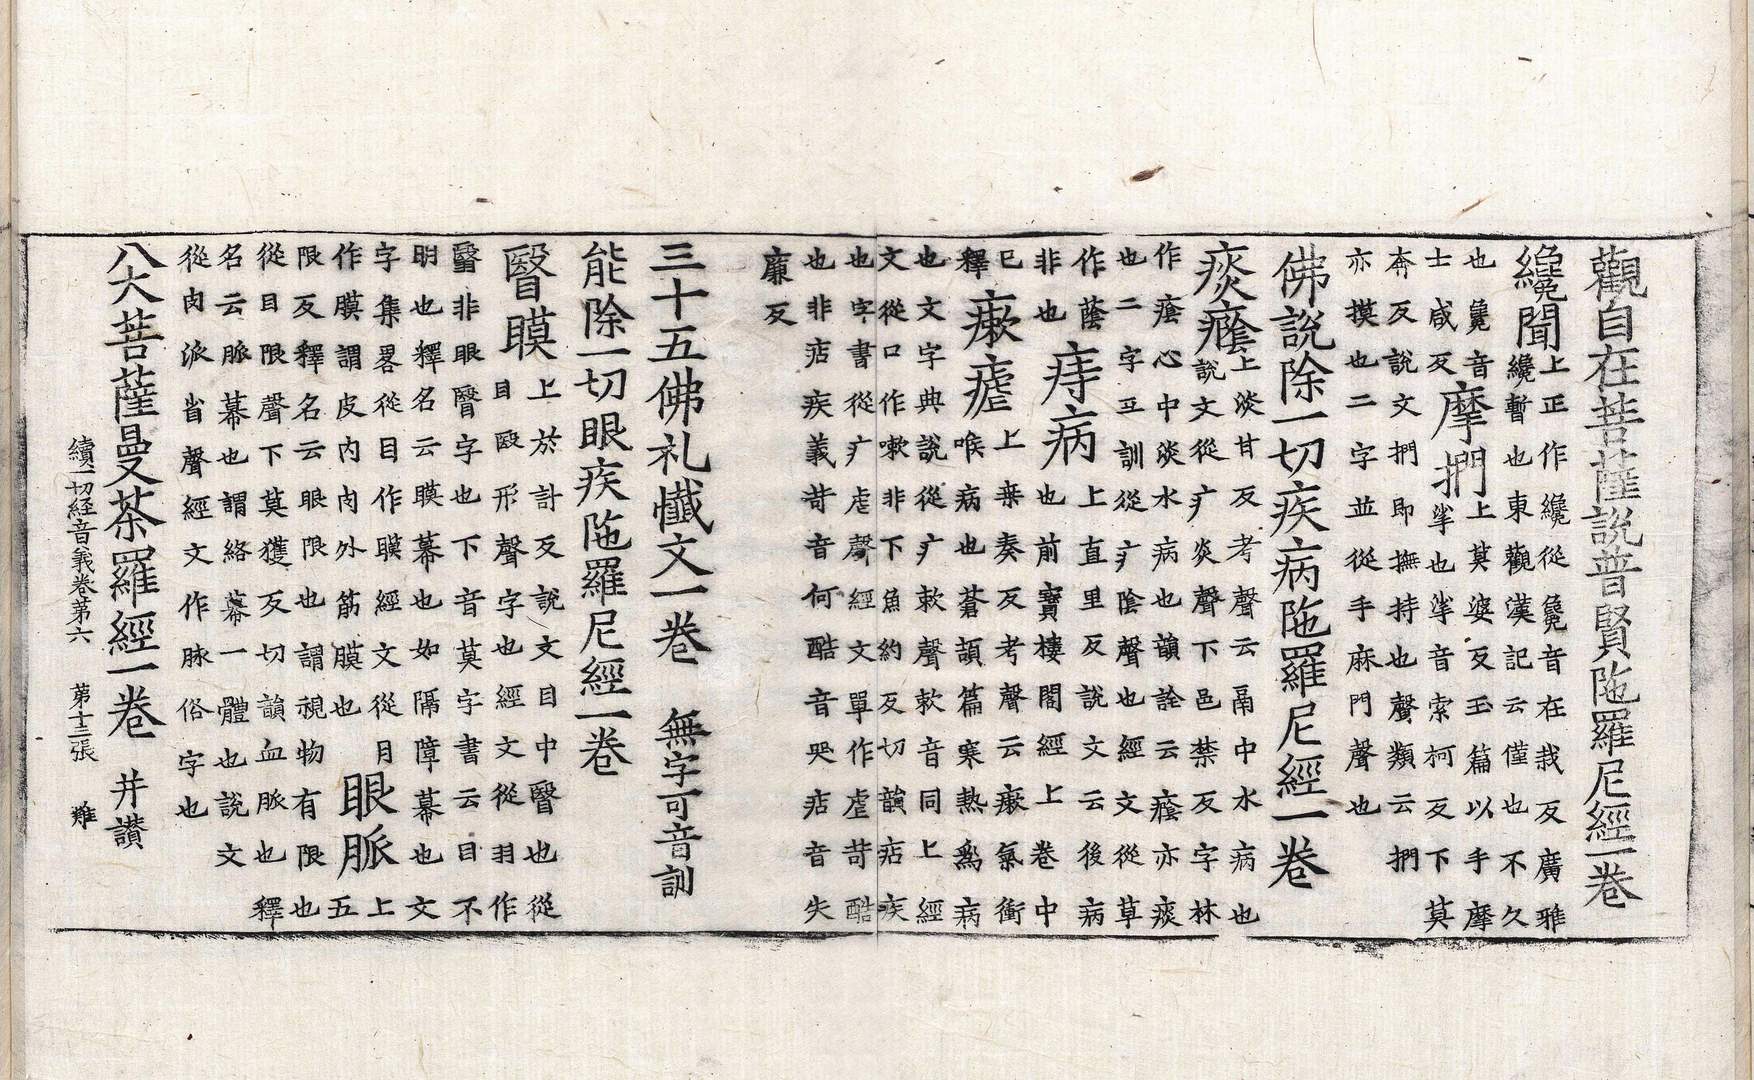 觀自在菩薩說普賢陁羅尼經一卷
纔聞上正作纔從毚音在哉反廣雅
纔暫也東觀漢記云僅也不久
也毚音士咸反
摩捫上莫婆反玉篇以手摩
挲也挲音索柯反下莫
奔反說文捫即撫持也聲類云捫
亦摸也二字並從手麻門聲也
佛說除一切疾病陁羅尼經一卷
痰癊上淡甘反考聲云鬲中水病也
說文從疒炎聲下邑禁反字林
作癊心中淡水病也韻詮云癊亦痰
也二字互訓從疒陰聲也經文從草
作蔭
非也
痔病上直里反說文云後病
也前寶樓閣經上卷中
已釋
瘶瘧上桒奏反考聲云瘶氣衝
喉病也蒼頡篇寒熱為病
也文字典說從疒欶聲欶音同上經
文從口作嗽非下魚約反切韻痁疾
也字書從疒虐聲經文單作虐苛酷
也非痁疾義苛音何酷音哭痁音失
廉反
三十五佛礼懺文一卷 無字可音訓
能除一切眼疾陁羅尼經一卷
瞖瞙上於計反說文目中瞖也從
目殹形聲字也經文從羽作
翳非眼瞖字也下音莫字書云目不
明也釋名云瞙幕也如隔障幕也文
字集畧從目作瞙經文從月上
作膜謂皮內肉外筋膜也
眼脈五
限反釋名云眼限也謂視物有限也
從目限聲下莫獲反切韻血脈也釋
名云脈幕也謂絡幕一體也說文
從肉派省聲經文作脉俗字也
八大菩薩曼荼羅經一卷 并讃
續一切經音義卷第六 第十三張 雞